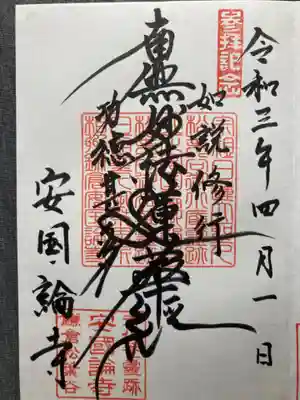 参拝記念
令和三年四月一日
如説修行
南無妙法蓮華経
功徳甚多
安国論寺
安國論寺
鎌倉松葉谷